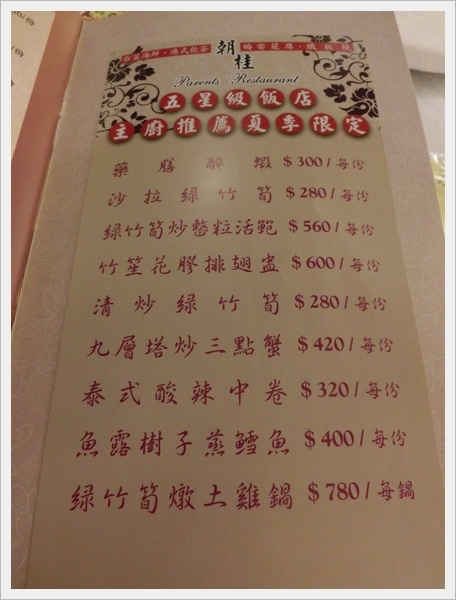 台菜海鮮・港式飲茶 朝桂 婚宴筵席・鐵板燒
Parents Restaurant
五星級飯店
主廚推薦夏季限定
藥膳醉蝦 $300/每份
沙拉綠竹筍 $280/每份
綠竹筍炒整粒活鮑 $560/每份
竹笙花膠排翅盅 $600/每份
清炒綠竹筍 $280/每份
九層塔炒三點蟹 $420/每份
泰式酸辣中卷 $320/每份
魚露樹子蒸鱈魚 $400/每份
綠竹筍燉土雞鍋 $780/每鍋